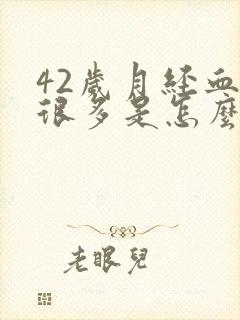 42歲月經血
很多是怎麼
老眼兒